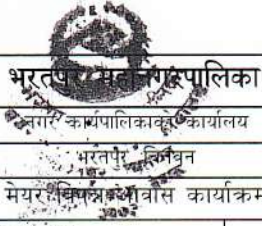 भरतपुर महानगरपालिका
नगर कार्यपालिकाको कार्यालय
भरतपुर, चितवन
मेयर विपन्न आवास कार्यक्रम